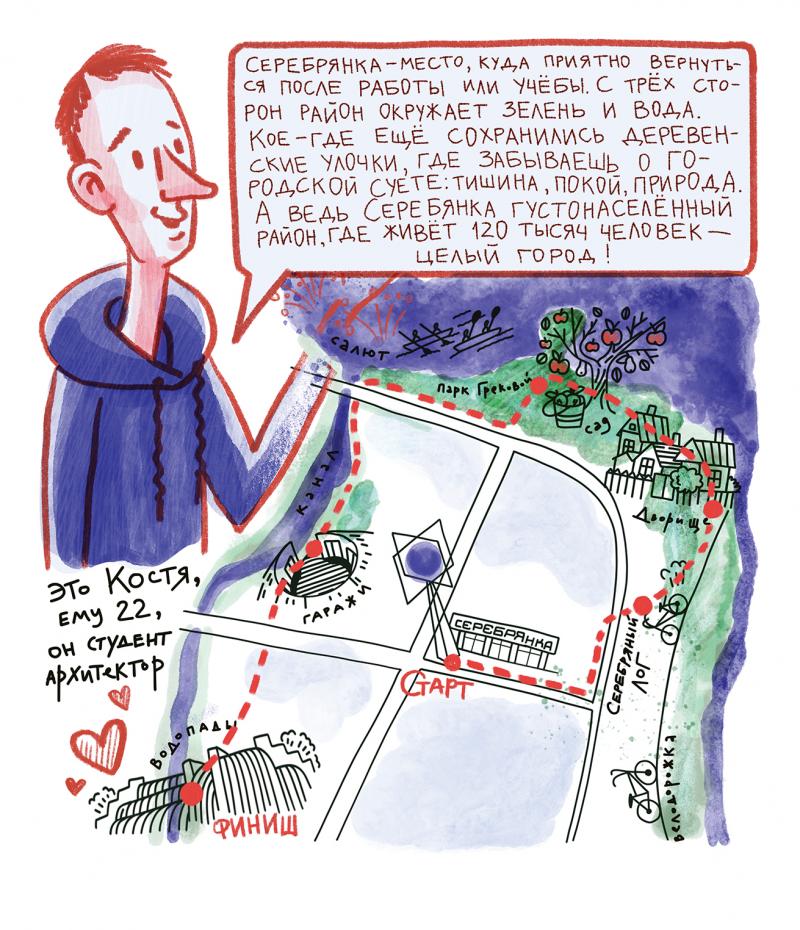 СЕРЕБРЯНКА – МЕСТО, КУДА ПРИЯТНО ВЕРНУТЬ-
СЯ ПОСЛЕ РАБОТЫ ИЛИ УЧЁБЫ. С ТРЁХ СТО-
РОН РАЙОН ОКРУЖАЕТ ЗЕЛЕНЬ И ВОДА.
КОЕ-ГДЕ ЕЩЁ СОХРАНИЛИСЬ ДЕРЕВЕН-
СКИЕ УЛОЧКИ, ГДЕ ЗАБЫВАЕШЬ О ГО-
РОДСКОЙ СУЕТЕ: ТИШИНА, ПОКОЙ, ПРИРОДА.
А ВЕДЬ СЕРЕБЯНКА ГУСТОНАСЕЛЁННЫЙ
РАЙОН, ГДЕ ЖИВЁТ 120 ТЫСЯЧ ЧЕЛОВЕК —
ЦЕЛЫЙ ГОРОД!
салют
парк Грековой
сад
канал
Дворище
ГАРАЖИ
СЕРЕБРЯНКА
СТАРТ
СЕРЕБРЯНЫЙ
ЛОГ
это Костя,
ему 22,
он студент
архитектор
водопады
велодорожка
ФИНИШ